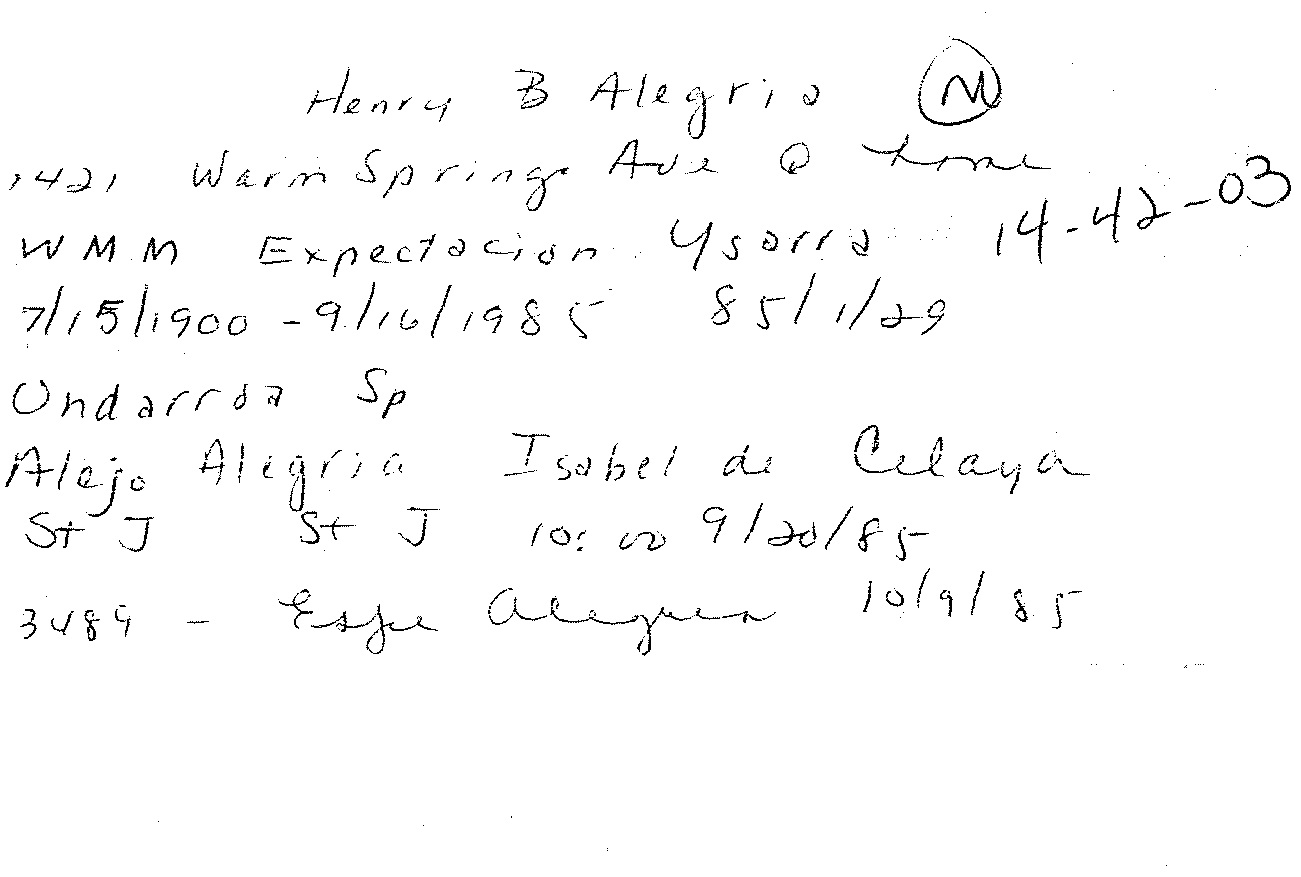 Henry B Alegria M
1421 Warm Springs Ave @ home
WMM Expectacion Ysarra 14-42-03
7/15/1900 - 9/16/1985 85/1/29
Ondarroa Sp
Alejo Alegria Isabel de Celaya
St J St J 10:00 9/20/85
3489 - Espe Alegria 10/9/85